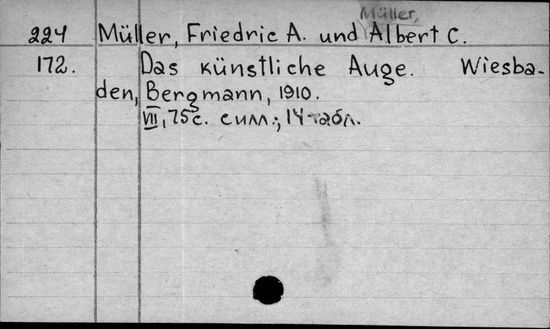 Müller,
224 Müller, Friedric A. und Albert C.
172. Das künstliche Auge. Wiesba-
den, Bergmann, 1910.
VII, 75с. с илл.; 14 табл.